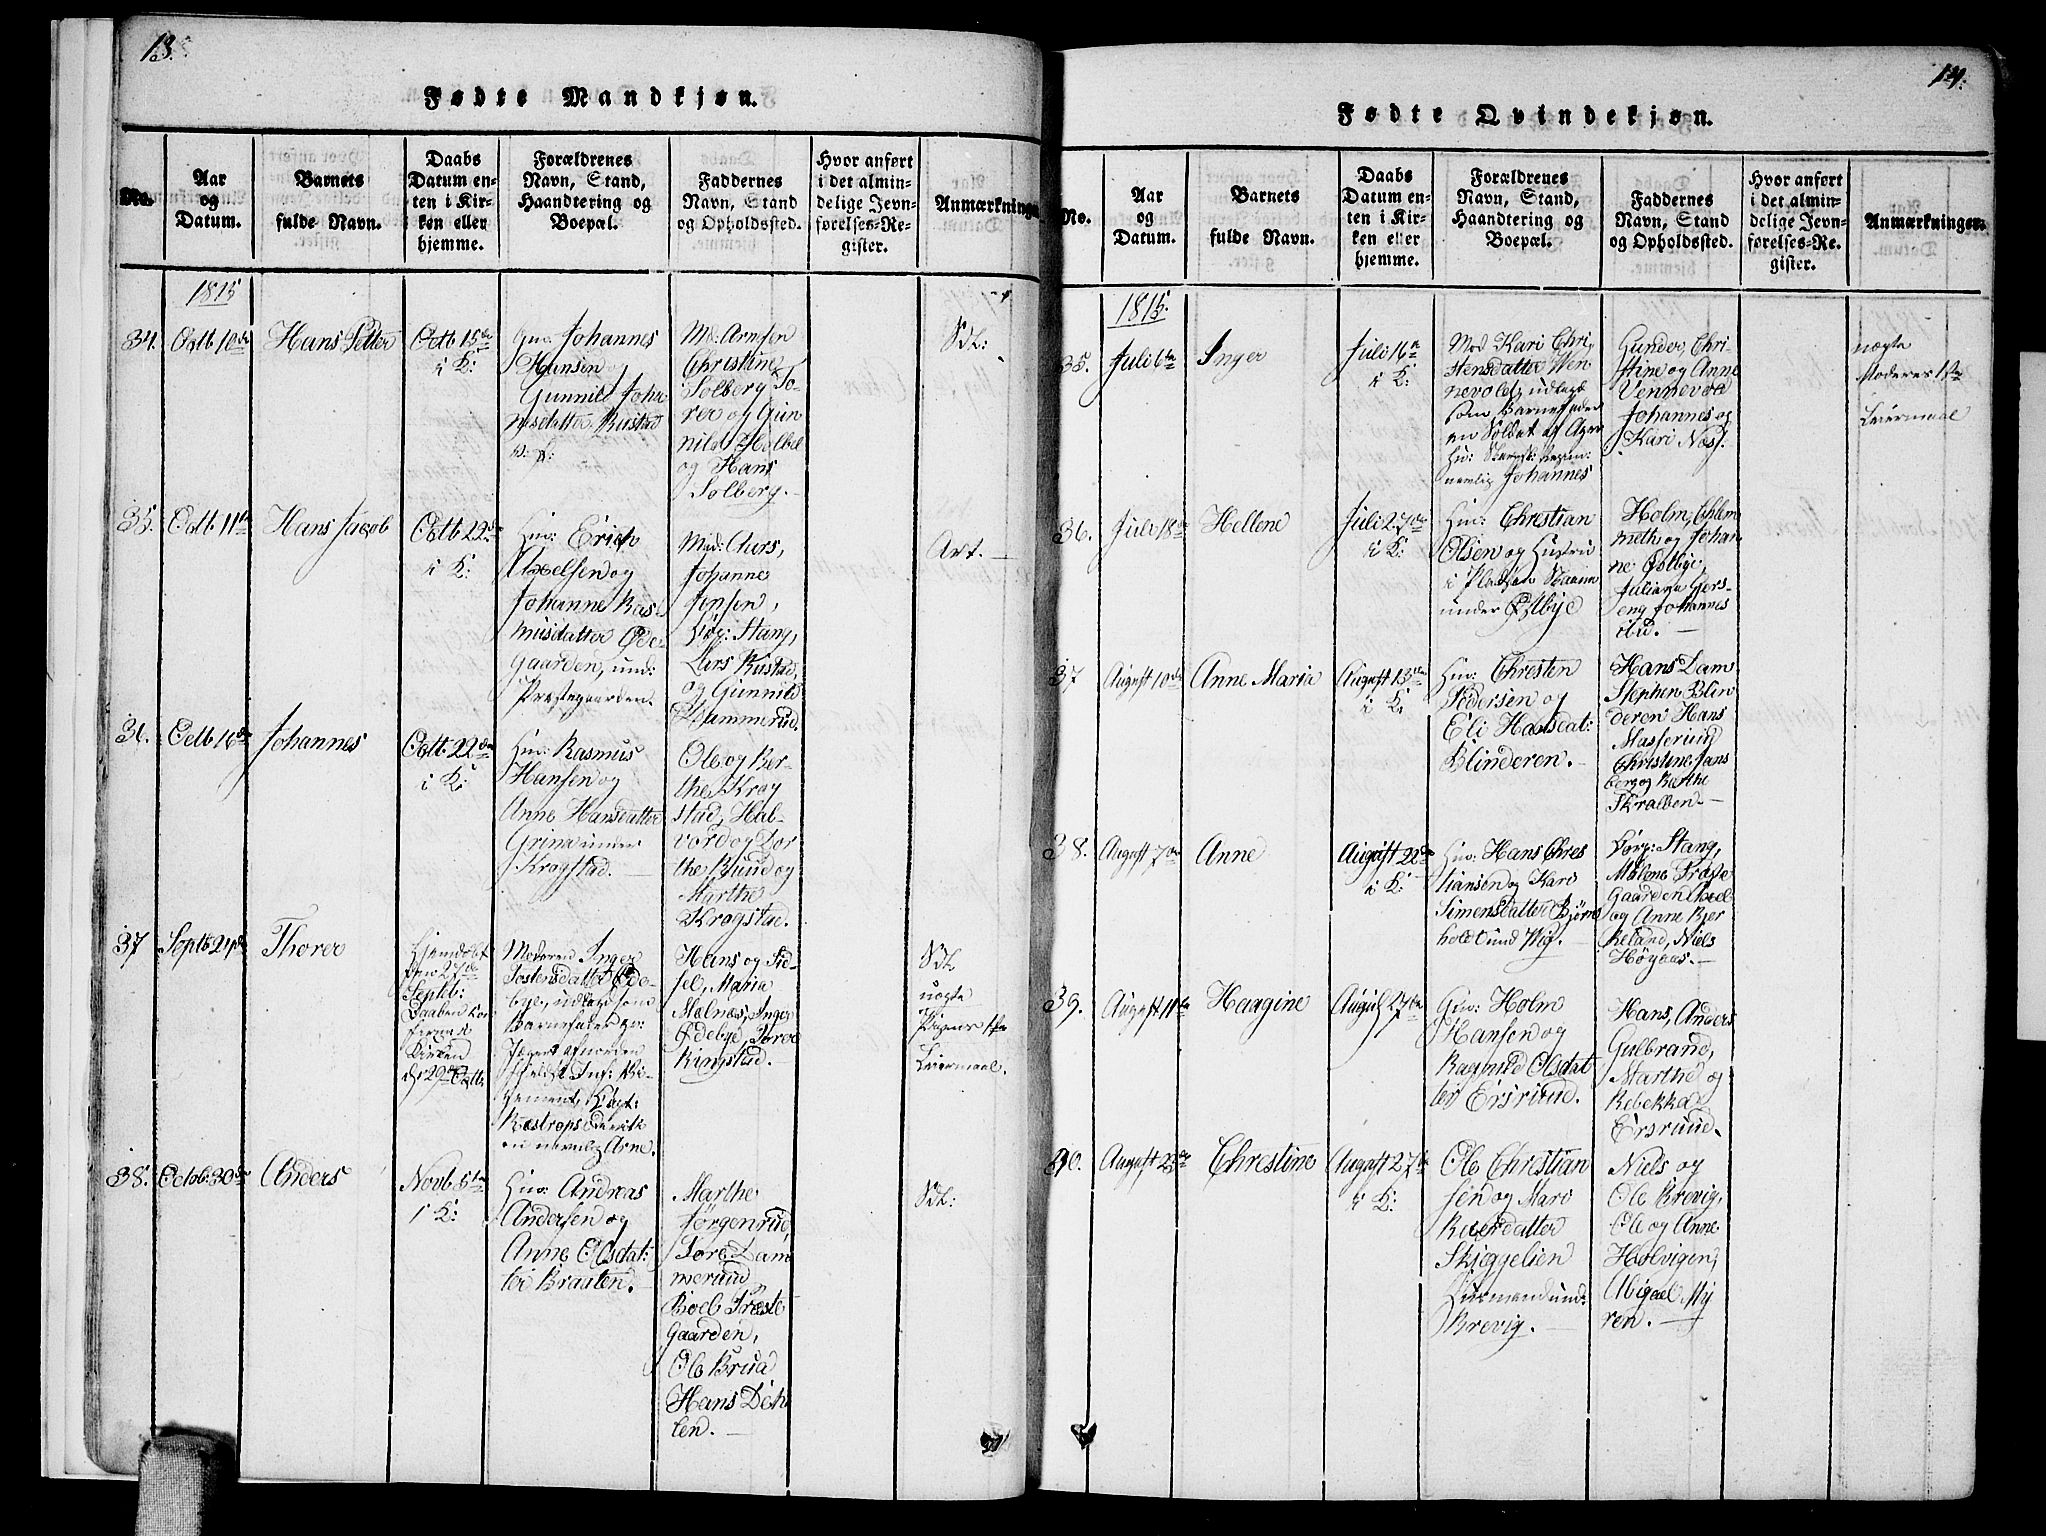 13.
Fødte Mandkjøn.
No.
Aar
og
Datum.
Barnets
fulde Navn.
Daabs
Datum en-
ten i Kir-
ken eller
hjemme.
Forældrenes
Navn, Stand,
Haandtering og
Boepæl.
Faddernes
Navn, Stand
og Opholdssted.
Hvor anført
i det almin-
delige Jevn-
førelses-Re-
gister.
Anmærkninger
1815
34.
Octb 10de
Hans Petter
Octb 15de
i K:
Johannes
Hansen og
Gunnild Joha
nesdatter Rustad
Md: Arnsen
Christine
Solberg To-
rer og Gun
nild
og Hans
Solberg.
Sdl:
35.
Octb 11te
Hans Jacob
Octb 22de
i K:
Huu: Erich
Axelsen og
Johanne Ras-
musdatter Øde-
Gaarden, und:
Præstegaarden.
Mad: Aars,
Johanne
Jensen,
Jørg: Stang,
Lars Rustad,
og Gunnild
Dammerud.
Art.
36.
Octb 16de
Johannes
Octb. 22de
i K:
Huu: Rasmus
Hansen og
Anne Hansdatter
Grina under
Krogstad.
Ole og Ber-
the Krog
stad, Hal-
vord og Dor
the Bjuud og
Marthe
Krogstad.
37
Septb 24de
Thorer
Hjemdøbt
den 27de
Septb:
Daaben
Kirken
d: 29de Octb.
Moderen Inger
Tostensdatter Øde-
bye, udlagt som
Barnefader
Jæger af norden
fieldst Inf: Re-
gement, Capt:
en navnlig Arne.
Hans og Sid-
sel, Maria
Melnæs, Inger
Ødebye, Torer
Ringstad.
Sdl
uægte
Leiermaal.
38.
Octob: 30de
Anders
Novb 5te
i K:
Huu: Andreas
Andersen og
Anne Olsdat:
ter Braaten.
Marthe
Jørgenrud,
Tore Dam
merud
Boel Præste
Gaarden,
Ole Brua
Hans Døh
len.
Sdl:
14.
Fødte Qvindekjøn.
No.
Aar
og
Datum.
Barnets
fulde Navn.
Daabs
Datum en-
ten i Kir-
ken eller
hjemme.
Forældrenes
Navn, Stand,
Haandtering og
Boepæl.
Faddernes
Navn, Stand
og Opholdssted.
Hvor anført
i det almin-
delige Jevn-
førelses-Re-
gister.
Anmærkninger.
1815.
35.
Juli 6te
Inger
Juli 16de
i K:
Mod Kari Chri,
stensdatter Ven
nevold, udlagt
som Barnefader
en Soldat af Ager
Hu: Skarpsk: Regim:
navnlig Johannes
Gunder, Chri-
stine og Anne
Vennevold
Johannes og
Kari Næs.
uægte
Moderes 1ste
Leiermaal
36.
Juli 18de
Hellene
Juli 27de
i K:
Huu: Chrestian
Olsen og Hustru
i Pladsen
under Østbye
Holm, Chlem
meth og Johan
ne Østbye,
Juliana Gers-
eng Johannes
ibid.
37
August 10de
Anne Maria
August 13de
i K:
Huu: Chresten
Pedersen og
Eli Hansdat:
Blinderen.
Hans Dam
Stephen Blin
deren Hans
Masserud
Christine Jans
berg og Berthe
Skralben.
38.
August 7de
Anne
August 22de
i K:
Huu: Hans Chres
tiansen og Kari
Simensdatter Bjørne
holdt und Wig.
Jørg: Stang,
Malene Præste
Gaarden Axel
og Anne Bjer
keland, Niels
Høyaas.
39.
August 11te
Haagine
August 27de
Huu: Holm
Hansen og
Ragnild Olsdat
ter Ersrud.
Hans, Anders
Gulbrand,
Marthe og
Rebekka
Ersruud.
40.
August 23de
Chrestine
August 27de
i K:
Ole Chrestian
sen og Mari
Reiersdatter
Skjeggelien
Huusmand und:
Brevig.
Niels og
Ole Brevig,
Ole og Anne
Holvigen,
Abigael My
ren.